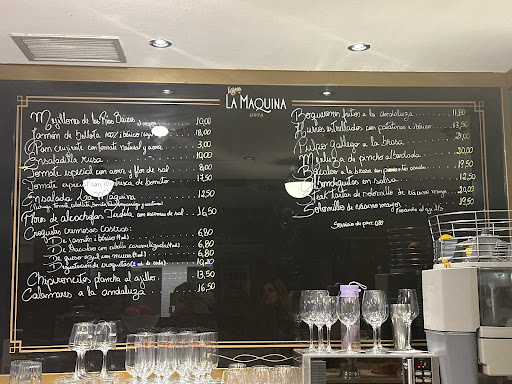 LA MAQUINA
GOYA
Mejillones de las Rías Baixas 10,00
Jamón de bellota 100% ibérico 18,00
Pan crujiente con tomate natural y aove 3,00
Ensaladilla rusa 10,00
Tomate especial con aove y flor de sal 8,00
Tomate especial con ventresca de bonito
Ensalada La Maquina 12,50
Flores de alcachofas Tudela con escamas de sal 16,50
Croquetas cremosas caseras:
De jamón ibérico (6ud.) 6,80
De bacalao con cebolla caramelizada (6ud.) 6,80
De queso azul con nueces (6ud.) 6,80
Degustación de croquetas (2 ud. de cada)
Chipironcitos plancha al ajillo 13,50
Calamares a la andaluza 16,50
Boquerones fritos a la andaluza 11,80
Huevos estrellados con patatas e ibérico 13,50
Pulpo gallego a la brasa
Merluza de pincho albardada
Bacalao a la brasa con 19,50
Albondiguitas en salsa 12,50
Steak tartar de solomillo de vacuno mayor 20,00
Solomillo de vacuno mayor 13,50
al ajillo
Servicio de pan: 0,80